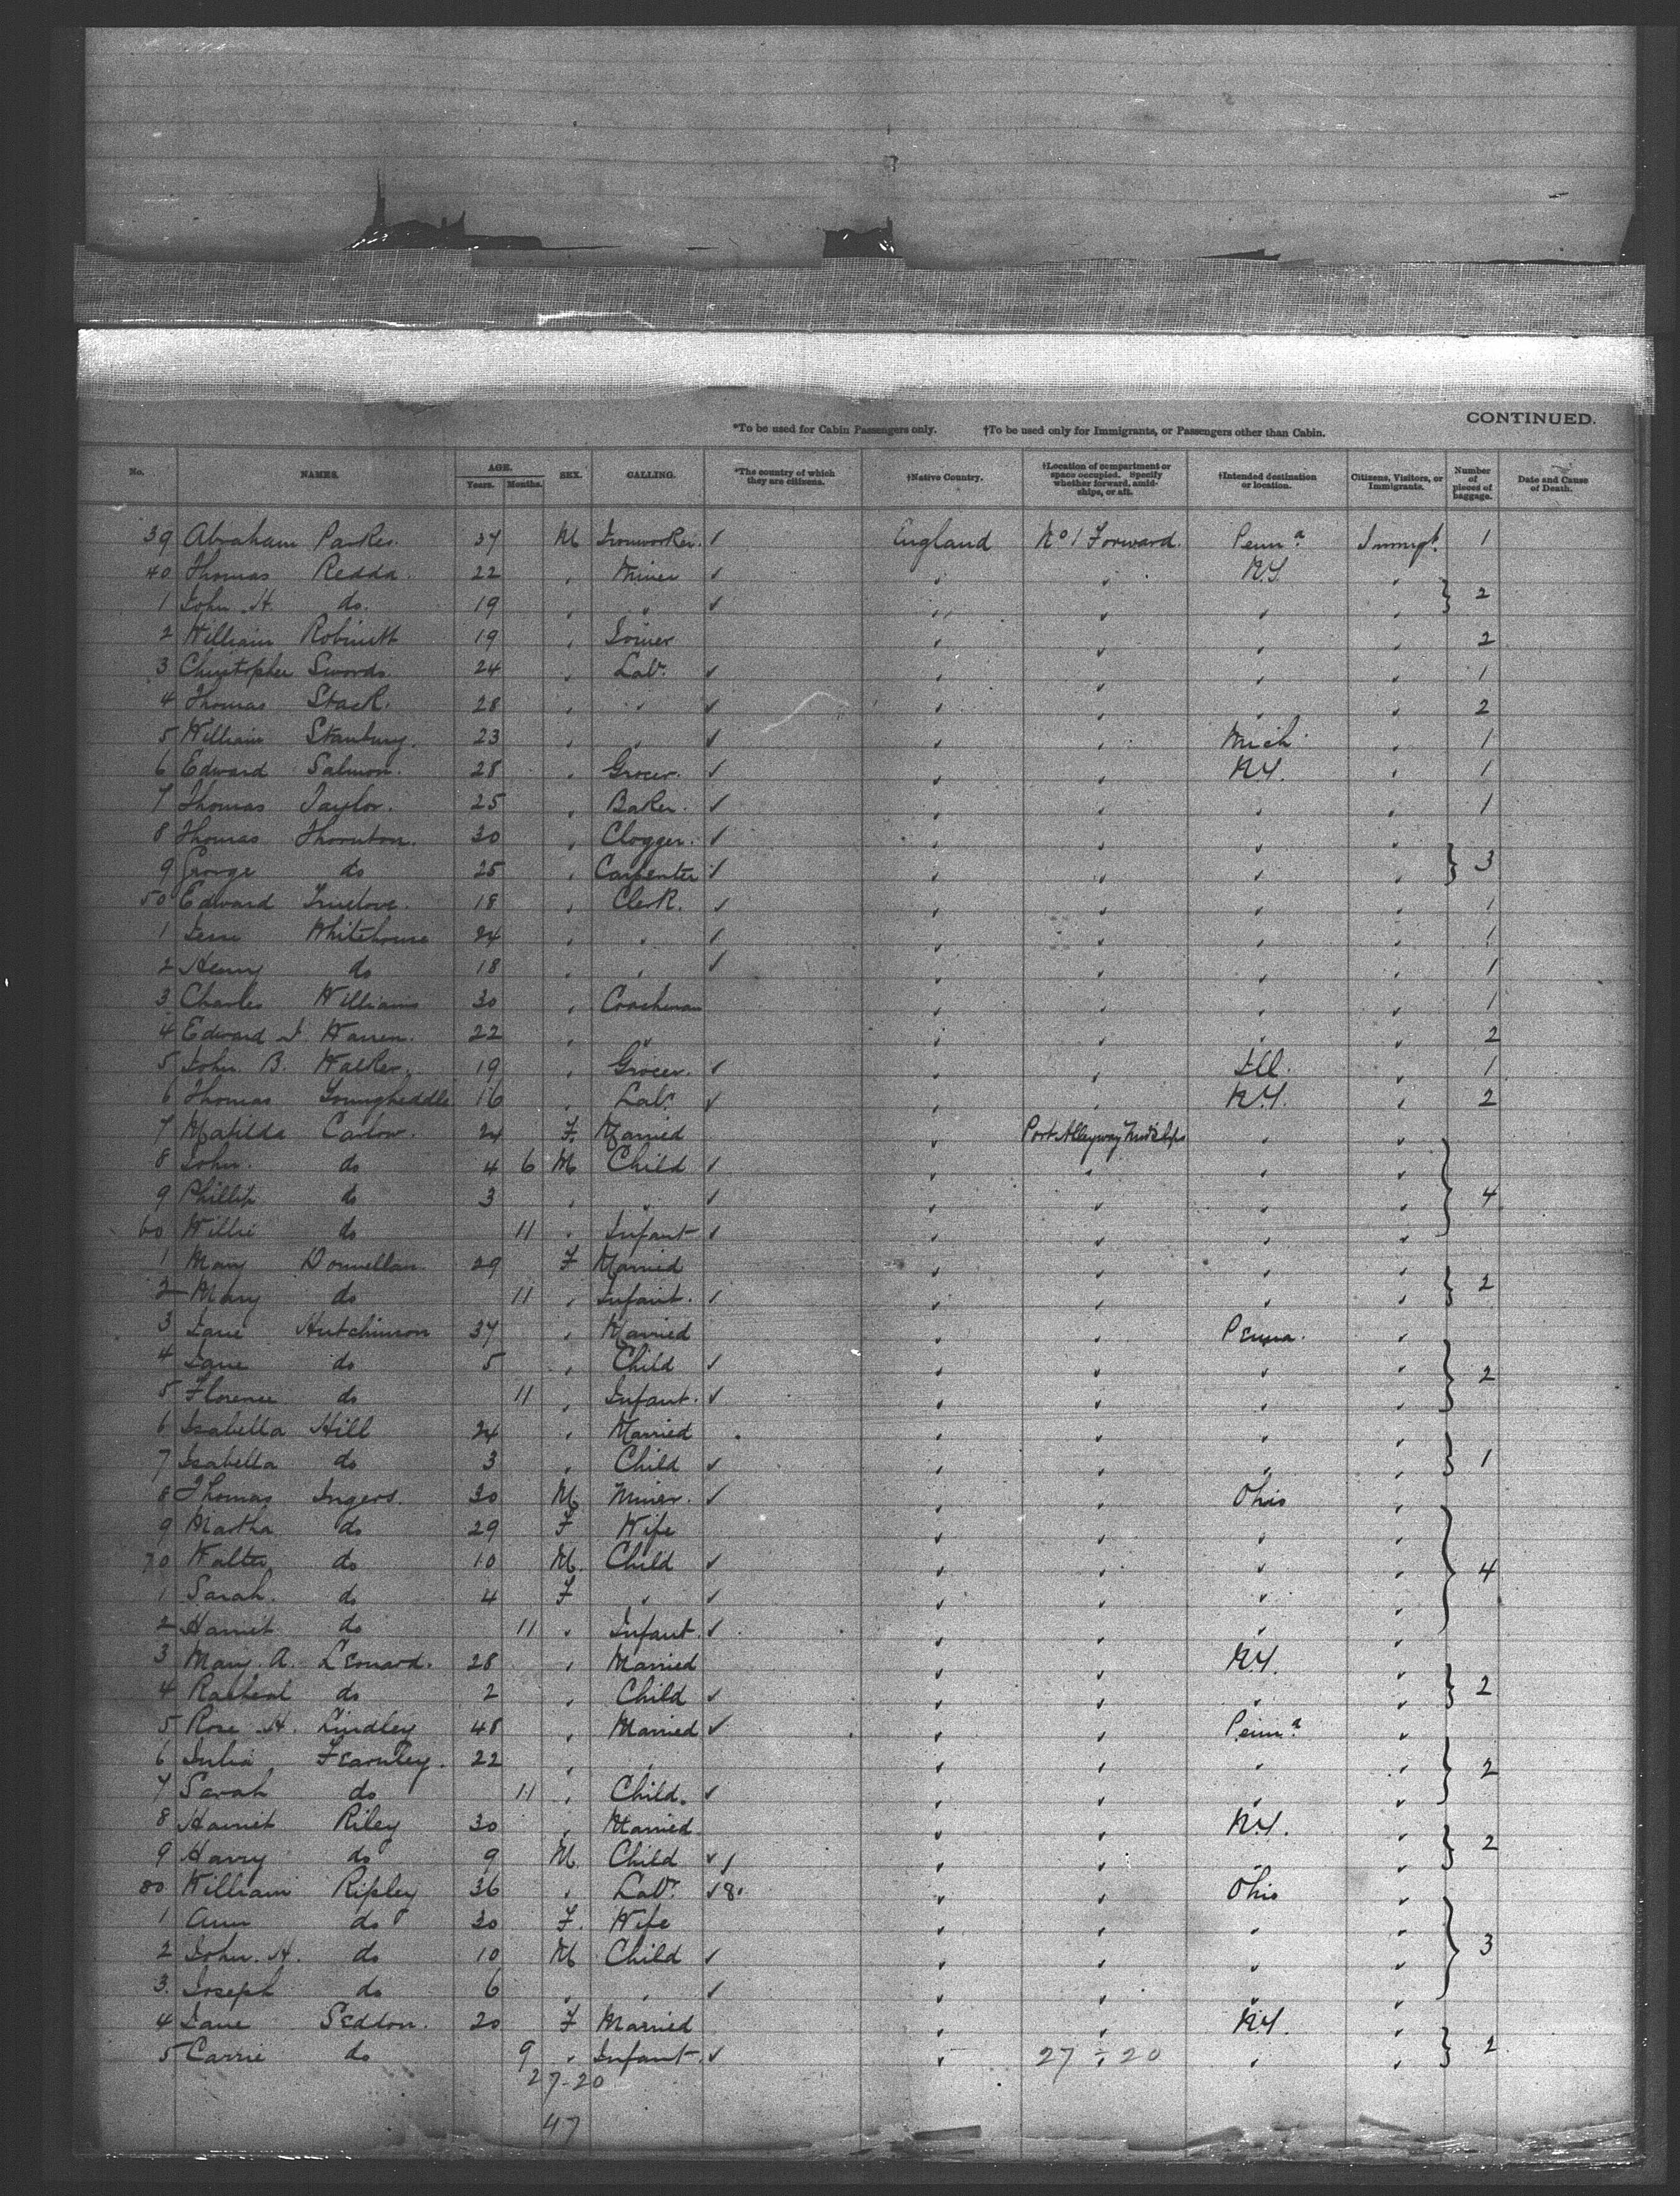 CONTINUED.
*To be used for Cabin Passengers only. †To be used only for Immigrants, or Passengers other than Cabin.
No. NAMES. AGE. Years. Months. SEX. CALLING. *The country of which they are citizens. †Native Country. †Location of compartment or space occupied. Specify whether forward, amidships, or aft. †Intended destination or location. Citizens, Visitors, or Immigrants. Number of pieces of baggage. Date and Cause of Death.
39 Abraham Parkes. 37 M Ironworker. ✓ England No 1 Forward. Penna. Immigt. 1
40 Thomas Redda. 22 " Miner ✓ " " N.Y. " } 2
1 John H. do. 19 " " ✓ " " " "
2 William Robinett 19 " Joiner " " " " 2
3 Christopher Swords. 24 " Labr. ✓ " " " " 1
4 Thomas Stack. 28 " " ✓ " " " " 2
5 William Stanbury. 23 " " ✓ " " Mich. " 1
6 Edward Salmon. 28 " Grocer. ✓ " " N.Y. " 1
7 Thomas Taylor. 25 " Baker. ✓ " " " " 1
8 Thomas Thornton. 30 " Clogger. ✓ " " " " } 3
9 George do 25 " Carpenter ✓ " " " "
50 Edward Truelove. 18 " Clerk. ✓ " " " " 1
1 Jesse Whitehouse 24 " " ✓ " " " " 1
2 Henry do 18 " " ✓ " " " " 1
3 Charles Williams 30 " Coachman " " " " 1
4 Edward J. Warren. 22 " " " " " " 2
5 John B. Walker. 19 " Grocer. ✓ " " Ill. " 1
6 Thomas Youngheddle 16 " Labr. ✓ " " N.Y. " 2
7 Matilda Carlow. 24 F. Married " Port Alleyway Midships " "
8 John. do 4 6 M Child ✓ " " " " } 4
9 Phillip do 3 " " ✓ " " " "
60 Willie do 11 " Infant ✓ " " " "
1 Mary Donnellan. 29 F Married " " " " } 2
2 Mary do 11 " Infant. ✓ " " " "
3 Jane Hutchinson 37 " Married " " Penna. "
4 Jane do 5 " Child ✓ " " " " } 2
5 Florence do 11 " Infant. ✓ " " " "
6 Isabella Hill 24 " Married " " " " } 1
7 Isabella do 3 " Child ✓ " " " "
8 Thomas Ingers. 30 M Miner. ✓ " " Ohio "
9 Martha do 29 F Wife " " " " } 4
70 Walter do 10 M. Child ✓ " " " "
1 Sarah. do 4 F " ✓ " " " "
2 Harriet do 11 " Infant. ✓ " " " "
3 Mary A. Leonard. 28 " Married " " N.Y. " } 2
4 Racheal do 2 " Child ✓ " " " "
5 Rose H. Lindley 48 " Married ✓ " " Penna. "
6 Julia Fearnley. 22 " " " " " " } 2
7 Sarah do 11 " Child. ✓ " " " "
8 Harriet Riley 30 " Married. " " N.Y. " } 2
9 Harry do 9 M Child ✓ " " " "
80 William Ripley 36 " Labr. ✓ 8. " " Ohio "
1 Ann do 30 F. Wife " " " " } 3
2 John. H. do 10 M Child ✓ " " " "
3. Joseph do 6 " " ✓ " " " "
4 Jane Seddon. 20 F Married " " N.Y. " } 2
5 Carrie do 9 " Infant. ✓ " 27 " 20 " "
27-20
47